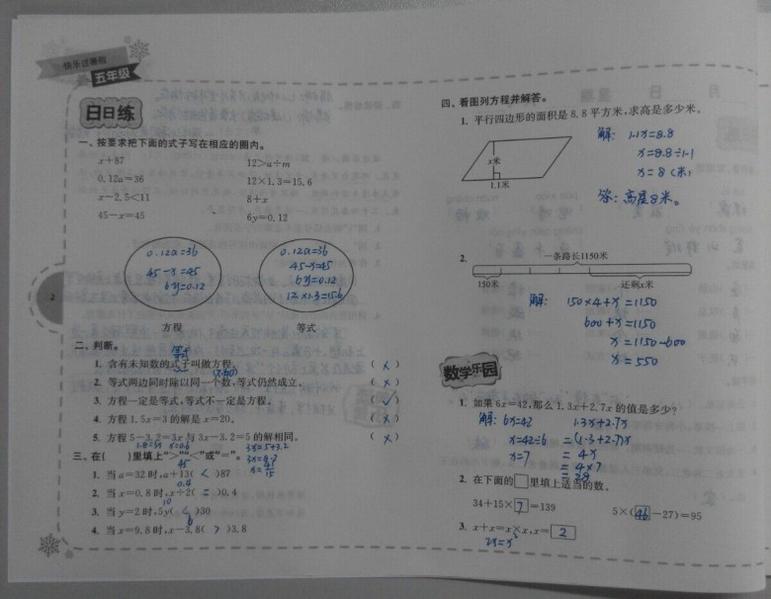 快乐过暑假
五年级
日日练
一、按要求把下面的式子写在相应的圈内。
x+87 12>a÷m
0.12a=36 12×1.3=15.6
x-2.5<11 8+x
45-x=45 6y=0.12
0.12a=36 0.12a=36
45-x=45 45-x=45
6y=0.12 6y=0.12
12×1.3=15.6
方程 等式
二、判断。
等式
1. 含有未知数的式子叫做方程。 (×)
2. 等式两边同时除以同一个数,等式仍然成立。 (×)
3. 方程一定是等式,等式不一定是方程。 (√)
4. 方程1.5x=3的解是x=20。 (×)
5. 方程5-3.2=3x与3x-3.2=5的解相同。 (×)
1.8=3x x=0.6 3x=5+3.2
3x=8.2
三、在( )里填上“>”“<”或“=”。
45
1. 当a=32时,a+13(<)87
0.4
2. 当x=0.8时,x÷2(=)0.4
10
3. 当y=2时,5y(<)30
6
4. 当x=9.8时,x-3.8(>)3.8
2
四、看图列方程并解答。
1. 平行四边形的面积是8.8平方米,求高是多少米。
x米
1.1米
解: 1.1x=8.8
x=8.8÷1.1
x=8(米)
答:高是8米。
2. 一条路长1150米
150米 还剩x米
解: 150×4+x=1150
600+x=1150
x=1150-600
x=550
数学乐园
1. 如果6x=42,那么1.3x+2.7x的值是多少?
解: 6x=42 1.3x+2.7x
x=42÷6 =(1.3+2.7)x
x=7 =4x
=4×7
=28
2. 在下面的□里填上适当的数。
34+15×7=139 5×(46-27)=95
3. x+x=x×x,x=2
2x=x²